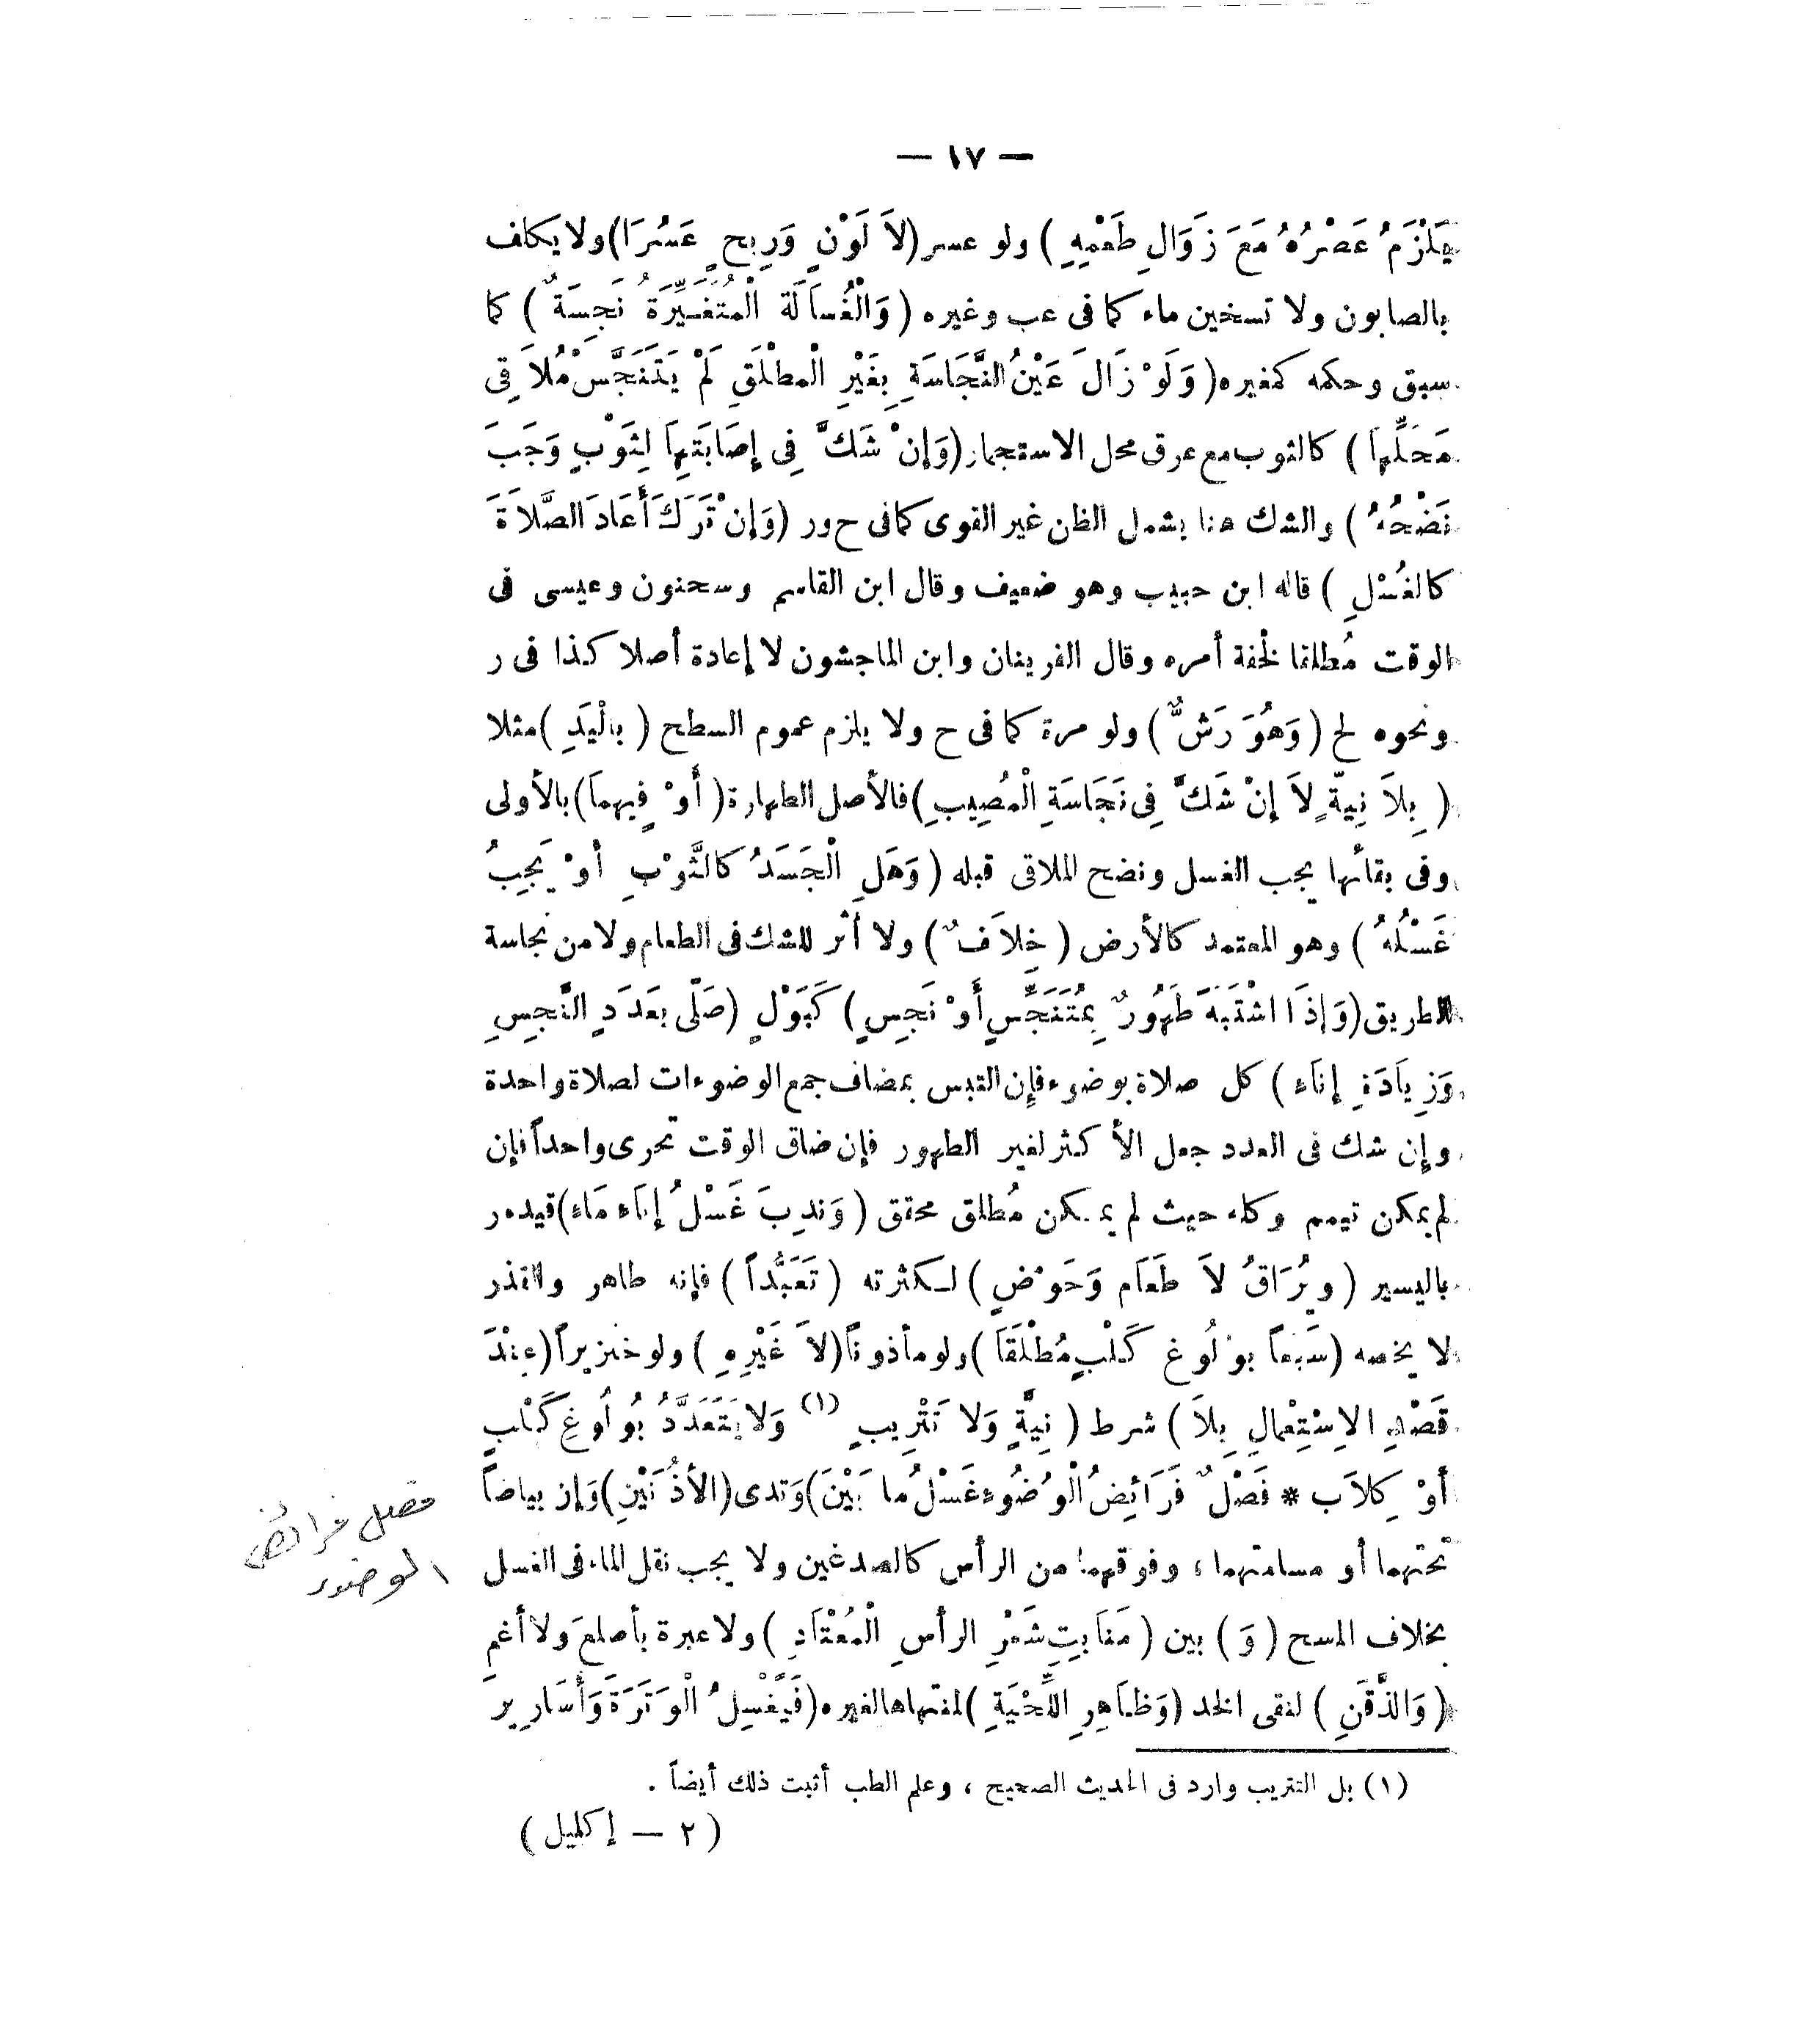 — ١٧ —
يَلْزَمُ عَصْرُهُ مَعَ زَوَالِ طَعْمِهِ ) ولو عسر (لاَ لَوْنٍ وَرِيحٍ عَسُرَا) ولا يكلف
بالصابون ولا تسخين ماء كما فى عب وغيره ( وَالْغُسَالَة الْمُتَغَيِّرَةُ نَجِسَةٌ ) كما
سبق وحكمه كمغيره ( وَلَوْ زَالَ عَيْنُ النَّجَاسَةِ بِغَيْرِ الْمطْلَقِ لَمْ يَتَنَجَّسْ مُلاَقِى
مَحَلِّهَا ) كالثوب مع عرق محل الاستجمار (وَإنْ شَكَّ فِى إصَابَتِهَا لِثَوْبٍ وَجَبَ
نَضْحُهُ ) والشك هنا يشمل الظن غير القوى كما فى ح ور (وَإنْ تَرَكَ أَعَادَ الصَّلاَةَ
كالغُسْلِ ) قاله ابن حبيب وهو ضعيف وقال ابن القاسم وسحنون وعيسى فى
الوقت مُطلقا لخفة أمره وقال القرينان وابن الماجشون لا إعادة أصلا كذا فى ر
ونحوه لح ( وَهُوَ رَشٌّ ) ولو مرة كما فى ح ولا يلزم عموم السطح ( بالْيَدِ ) مثلا
( بِلاَ نِيةٍ لاَ إنْ شَكَّ فِى نَجَاسَةِ الْمُصِيبِ ) فالأصل الطهارة ( أَوْ فِيهِمَا ) بالأولى
وفى بقائها يجب الغسل ونضح الملاقى قبله ( وَهَلِ الْجَسَدُ كالثَّوْبِ أوْ يَجِبُ
غَسْلُهُ ) وهو المعتمد كالأرض ( خِلاَفٌ ) ولا أثر للشك فى الطعام ولا من نجاسة
الطريق (وَإذَا اشْتَبَهَ طَهُورٌ بِمُتَنَجِّسٍ أَوْ نَجِسٍ ) كَبَوْلٍ (صَلَّى بعَدَدِ النَّجِسِ
وَزِيَادَةِ إنَاءٍ ) كل صلاة بوضوء فإن التبس بمضاف جمع الوضوءات لصلاة واحدة
وإن شك فى العدد جعل الأكثر لغير الطهور فإن ضاق الوقت تحرى واحداً فإن
لم يمكن تيمم وكله حيث لم يمكن مُطلق محقق ( وَندِبَ غَسْلُ إنَاء مَاءٍ ) قيده ر
باليسير ( ويُرَاقُ لاَ طَعَام وَحَوْضٍ ) لكثرته ( تَعَبُّداً ) فإنه طاهر والقذر
لا يخصه (سَبْعاً بوُلُوغِ كَلْبٍ مُطْلَقَا ) ولو مأذوناً (لاَ غَيْرِهِ ) ولو خنزيراً (عِنْدَ
قَصْدِ الاِسْتِعْمالِ بِلاَ ) شرط ( نِيَّةٍ وَلا تَتْرِيبٍ (١) وَلا يَتَعَدَّدُ بُولُوغِ كَلْبٍ
أَوْ كِلاَب * فَصْلٌ فَرَائِضُ الْوُضُوءِ غَسْلُ ما بَيْنَ ) وَتدى (الأذُنَيْنِ ) وَإن بياضاً
تحتهما أو مسامتهما ، وفوقهما من الرأس كالصدغين ولا يجب نقل الماء فى الغسل
بخلاف المسح ( وَ ) بين ( مَنَابِتِ شَعْرِ الرأسِ الْمُعْتَادِ ) ولا عبرة بأصلعَ ولا أغمِ
( وَالذَّقَنِ ) لنقى الخد (وَظَاهِرِ اللِّحْيَةِ ) لمنتهاها لغيره (فَيَغْسِلُ الْوَتَرَةَ وَأَسَارِير
فصل فرائض
الوضوء
(١) بل التتريب وارد فى الحديث الصحيح ، وعلم الطب أثبت ذلك أيضاً .
( ٢ — إكليل )